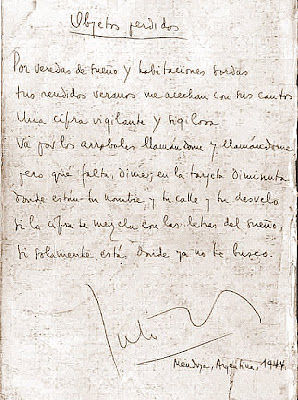 Objetos perdidos
Por veredas de sueño y habitaciones sordas
tus rendidos veranos me acechan con sus cantos
Una cifra vigilante y sigilosa
va por los arrabales llamándome y llamándome
pero qué falta, dime, en la tarjeta diminuta
donde están tu nombre y tu calle y tu desvelo
si la cifra se mezcla con las letras del sueño,
si solamente estás donde ya no te busco.
Julio
Mendoza, Argentina, 1944